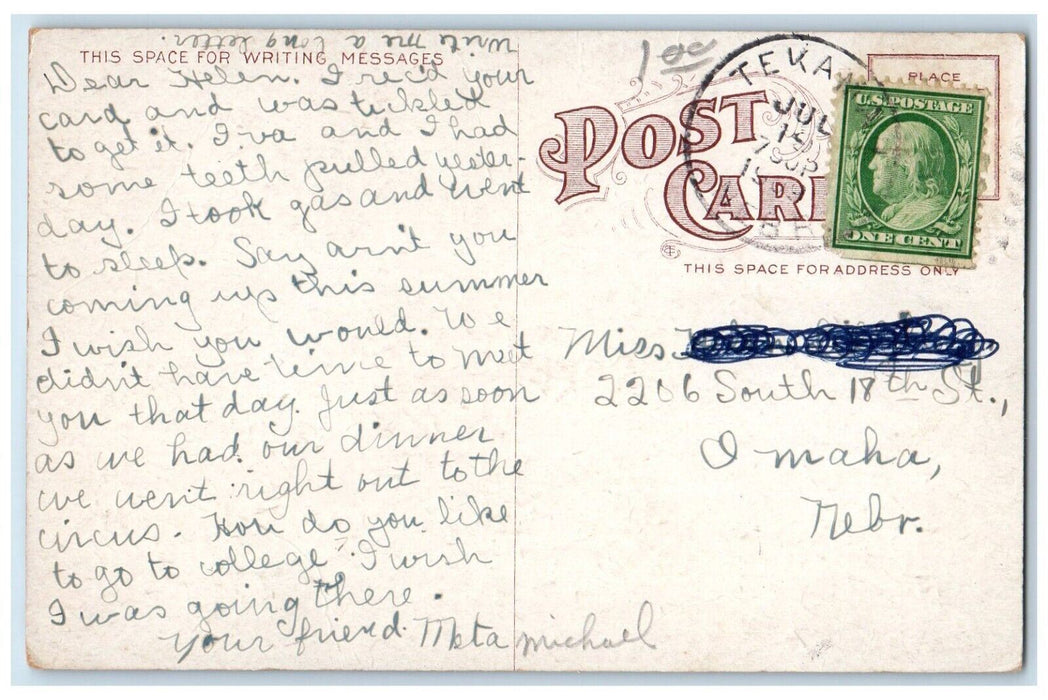 write me a long letter.
THIS SPACE FOR WRITING MESSAGES
Dear Helen. I rec'd your
card and was tickled
to get it. Iva and I had
some teeth pulled yester-
day. I took gas and went
to sleep. Say arn't you
coming up this summer
I wish you would. We
didn't have time to meet
you that day. Just as soon
as we had our dinner
we went right out to the
circus. How do you like
to go to college? I wish
I was going there.
Your friend Meta Michael
POST
CARD
TEKA
JUL
NEBR
PLACE
U.S. POSTAGE
ONE CENT
THIS SPACE FOR ADDRESS ONLY
Miss
2206 South 18th St.,
Omaha,
Nebr.